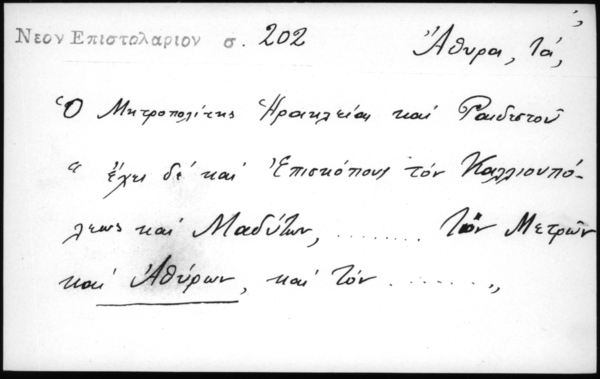 Νεον Επιστολαριον σ. 202 Ἄθυρα, τά,
Ὁ Μητροπολίτης Ἡρακλείας καί Ραιδεστοῦ
“ ἔχει δέ καί Ἐπισκόπους τόν Καλλιουπό-
λεως καί Μαδύτων, ........ τόν Μετρῶν
καί Ἀθύρων, καί τόν ....... „